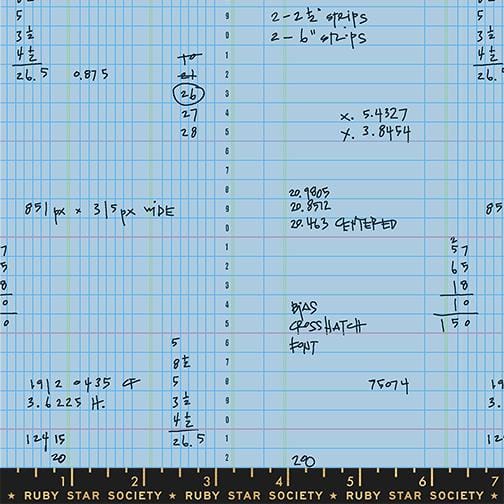 8 ½
5
3 ½
4 ½
26.5 0.875
9
0
1
2
3
4
5
6
7
8
9
0
1
2
3
4
5
6
7
8
9
0
1
2
2 - 2 ½" strips
2 - 6" strips
26
27
28
x. 5.4327
y. 3.8454
5
3 ½
4 ½
26.5
851px x 315px WIDE
20.9805
20.8512
20.463 CENTERED
851
7
5
8
0
0
2
57
65
18
10
150
BIAS
CROSSHATCH
FONT
1912 0435 CF
3.6225 H.
12415
20
5
8 ½
5
3 ½
4 ½
26.5
75074
290
19
3.
124
1 2 3 4 5 6 7
★ RUBY STAR SOCIETY ★ RUBY STAR SOCIETY ★ RUBY STAR SOCIETY ★